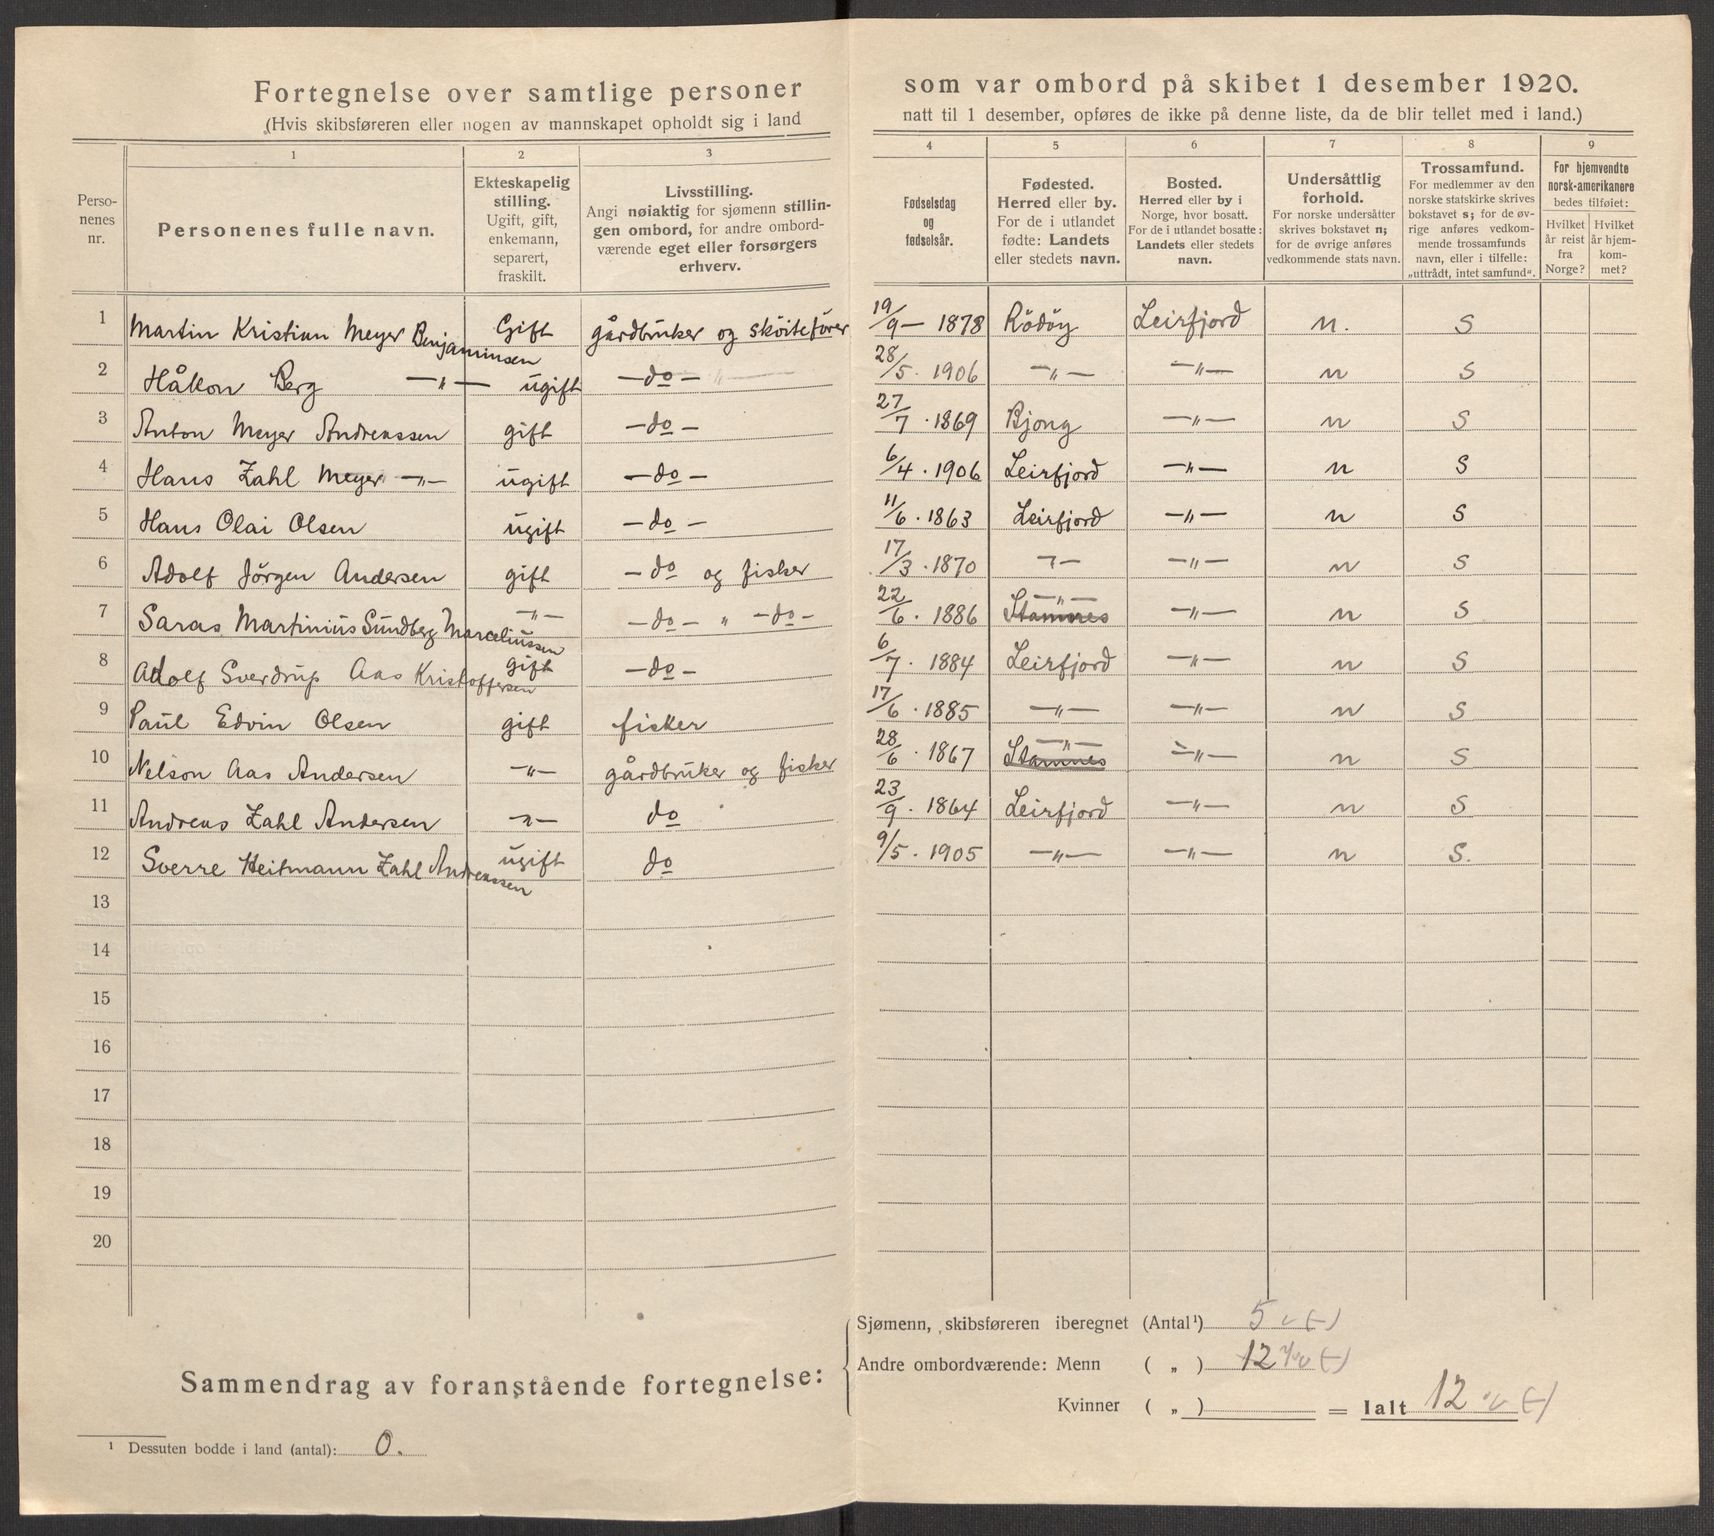 Fortegnelse over samtlige personer som var ombord på skibet 1 desember 1920.
(Hvis skibsføreren eller nogen av mannskapet opholdt sig i land natt til 1 desember, opføres de ikke på denne liste, da de blir tellet med i land.)
1 2 3 4 5 6 7 8 9
Personenes nr.
Personenes fulle navn.
Ekteskapelig
stilling.
Ugift, gift,
enkemann,
separert,
fraskilt.
Livsstilling.
Angi nøiaktig for sjømenn stillin-
gen ombord, for andre ombord-
værende eget eller forsørgers
erhverv.
Fødselsdag
og
fødselsår.
Fødested.
Herred eller by.
For de i utlandet
fødte: Landets
eller stedets navn.
Bosted.
Herred eller by i
Norge, hvor bosatt.
For de i utlandet bosatte:
Landets eller stedets
navn.
Undersåttlig
forhold.
For norske undersåtter
skrives bokstavet n;
for de øvrige anføres
vedkommende stats navn.
Trossamfund.
For medlemmer av den
norske statskirke skrives
bokstavet s; for de øv-
rige anføres vedkom-
mende trossamfunds
navn, eller i tilfelle:
„uttrådt, intet samfund".
For hjemvendte
norsk-amerikanere
bedes tilføiet:
Hvilket
år reist
fra
Norge?
Hvilket
år hjem-
kom-
met?
1 Martin Kristian Meyer Benjaminsen Gift gårdbruker og skøitefører 19/9 - 1878 Rödöy Leirfjord n. S
2 Håkon Berg —„— ugift —do— „ 28/5. 1906 —„— —„— n S
3 Anton Meyer Andreassen gift —do— 27/7. 1869 Bjong —„— n S
4 Hans Zahl Meyer —„— ugift —do— 6/4. 1906 Leirfjord —„— n S
5 Hans Olai Olsen ugift —do— 11/6. 1863 Leirfjord —„— n S
6 Adolf Jörgen Andersen gift —do og fisker 17/3. 1870 —„— —„— n S
7 Saras Martinius Sundberg Marceliussen —„— —do— „ —do— 22/6. 1886 —„— Stamnes —„— n S
8 Adolf Sverdrup Aas Kristoffersen gift —do— 6/7. 1884 Leirfjord —„— n S
9 Paul Edvin Olsen gift fisker 17/6. 1885 —„— —„— n S
10 Nelson Aas Andersen —„— gårdbruker og fisker 28/6. 1867 —„— Stamnes —„— n S
11 Andreas Zahl Andersen —„— do 23/9. 1864 Leirfjord —„— n S
12 Sverre Heitmann Zahl Andreassen ugift do 9/5. 1905 —„— —„— n S.
13
14
15
16
17
18
19
20
Sammendrag av foranstående fortegnelse:
Sjømenn, skibsføreren iberegnet (Antal¹) 5
Andre ombordværende: Menn ( „ ) 12
Kvinner ( „ ) = Ialt 12
¹ Dessuten bodde i land (antal): 0.